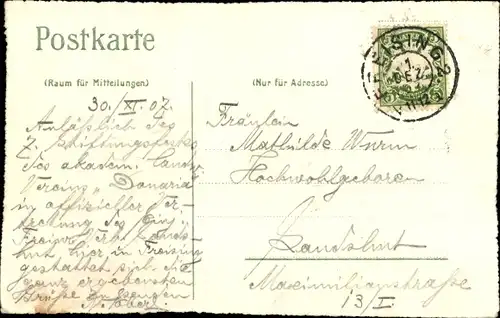 Postkarte
(Raum für Mitteilungen)
(Nur für Adresse)
30./XI. 07.
Anläßlich des
7. Stiftungsfestes
des akadem. Landw.
Vereins „Bavaria"
in offizieller Ver-
tretung des
Landshut hier in Freising
gestattet sich die
ganz ergebensten
Grüße zu
Fräulein
Mathilde Wurm
Hochwohlgeboren
Landshut
Maximilianstraße
13/I.
FREISING 2
1. DEZ.
11-12
5